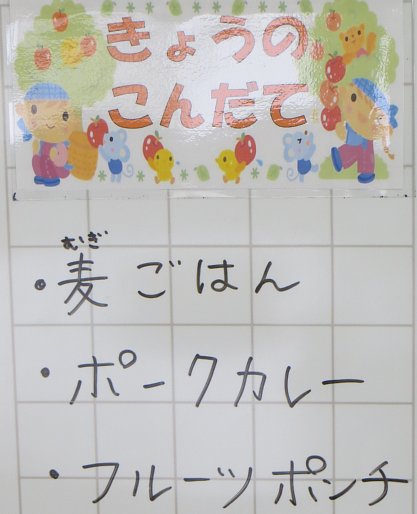 きょうの
こんだて
むぎ
・麦ごはん
・ポークカレー
・フルーツポンチ